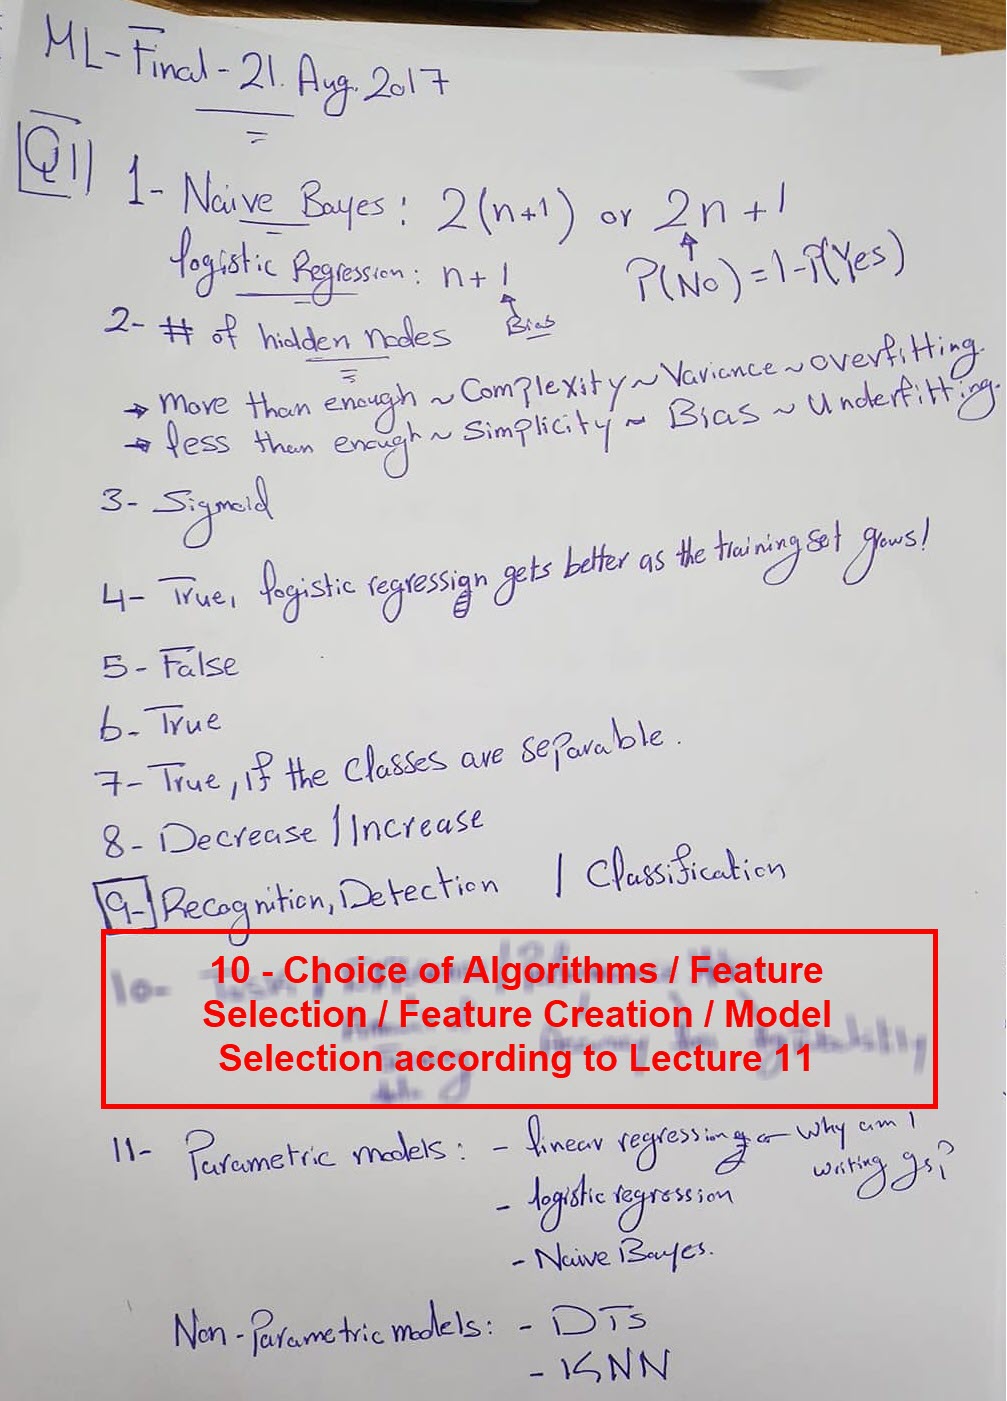 ML-Final-21.Aug.2017
Q1
1- Naive Bayes: 2(n+1) or 2n+1
logistic Regression: n+1 P(No)=1-P(Yes)
Bias
2- # of hidden nodes
→ More than enough ~ Complexity ~ Variance ~ overfitting.
→ less than enough ~ Simplicity ~ Bias ~ Underfitting.
3- Sigmoid
4- True, logistic regression gets better as the training set grows!
5- False
6- True
7- True, if the classes are separable.
8- Decrease / Increase
9- Recognition, Detection / Classification
10 - Choice of Algorithms / Feature
Selection / Feature Creation / Model
Selection according to Lecture 11
11- Parametric models: - linear regression Why am I
writing gs!?
- logistic regression
- Naive Bayes.
Non-Parametric models: - DTs
- KNN